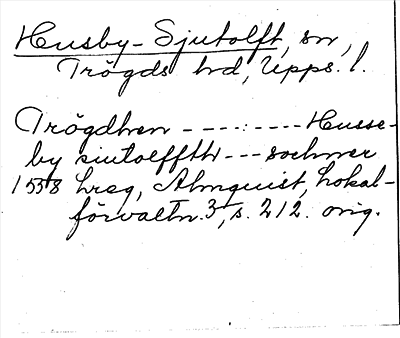 Husby-Sjutolft, sn,
Trögds hd, Upps. l.
Trögdhen ----:---- Husse-
by siutolffth --- sochner
1538 hreg, Almquist, Lokal-
förvaltn. 3, s. 212. orig.